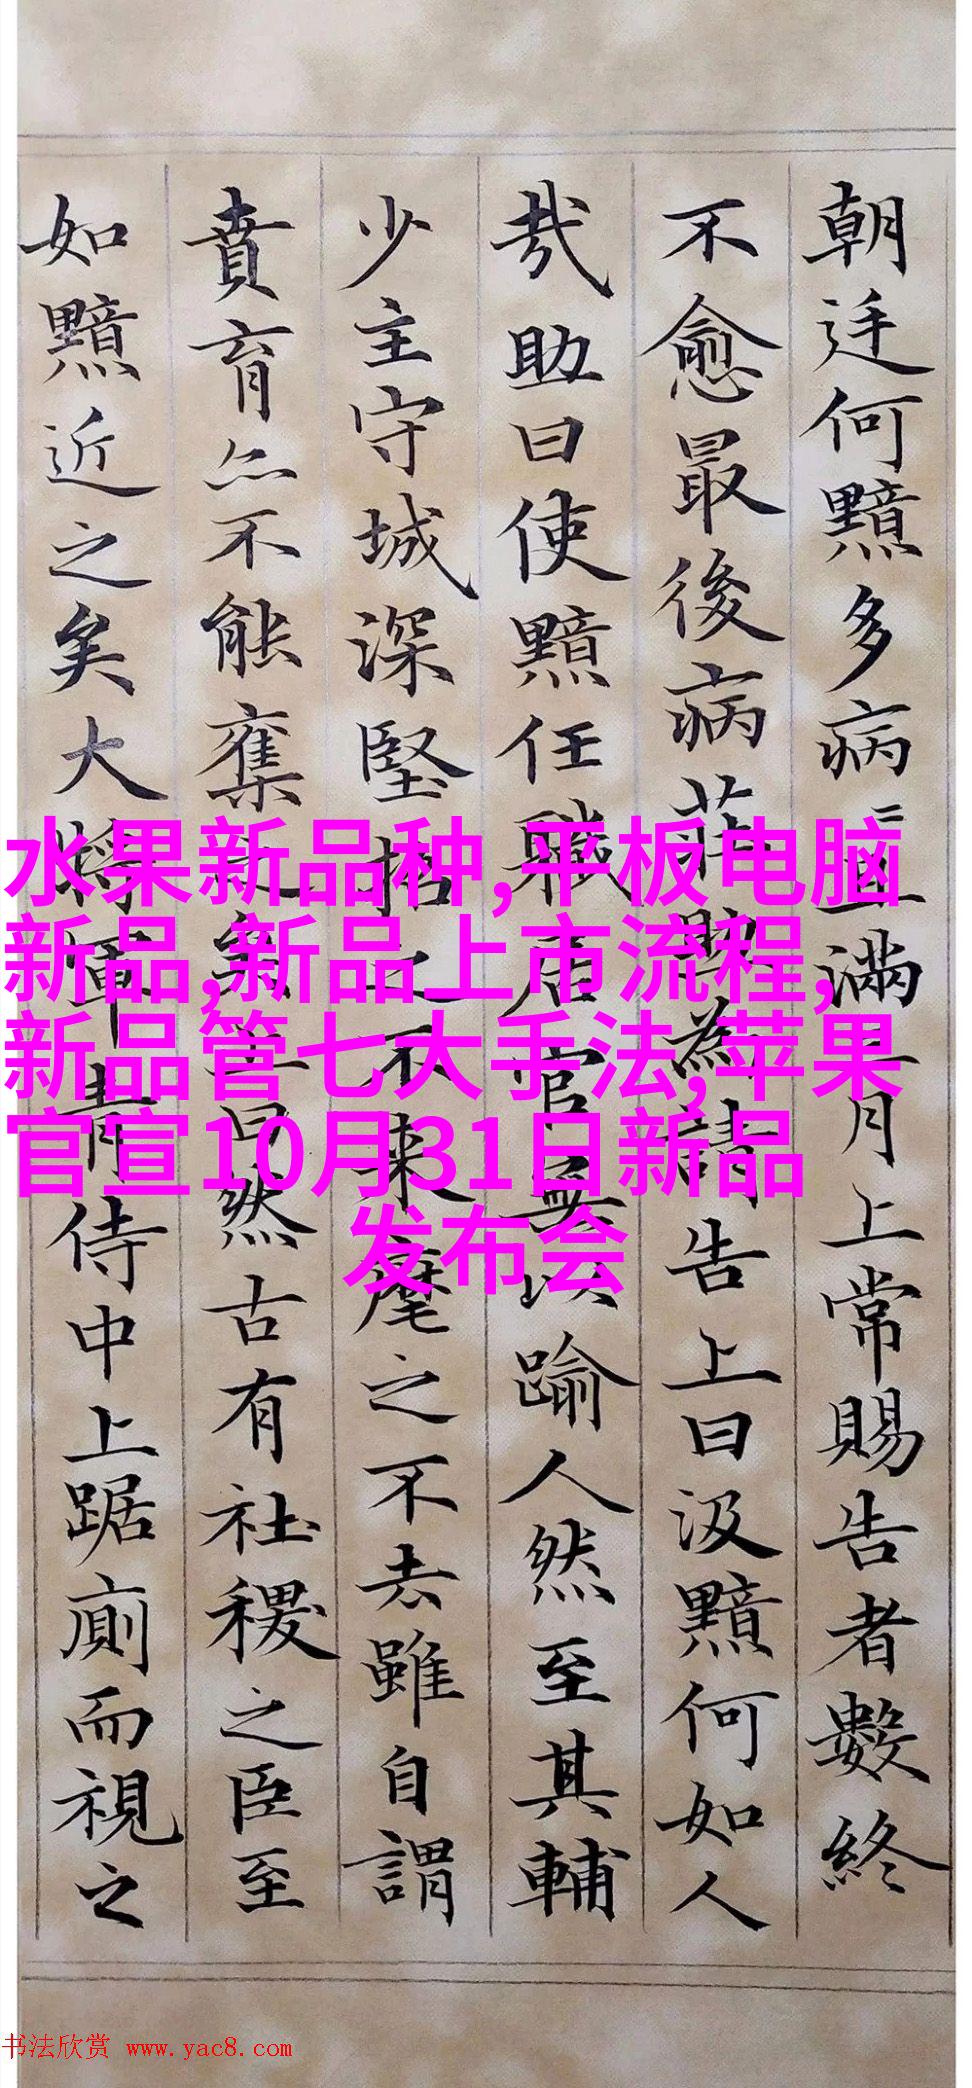 朝廷何黯多病且滿三月上常賜告者數終
不愈最後病莊助為請告上曰汲黯何如人
哉助曰使黯任職居官無以踰人然至其輔
少主守城深堅招之不來麾之不去雖自謂
賁育亦不能奪之矣上曰然古有社稷之臣至
如黯近之矣大將軍青侍中上踞廁而視之
水果新品种,平板电脑
新品,新品上市流程,
新品管七大手法,苹果
官宣10月31日新品
发布会
书法欣赏 www.yac8.com